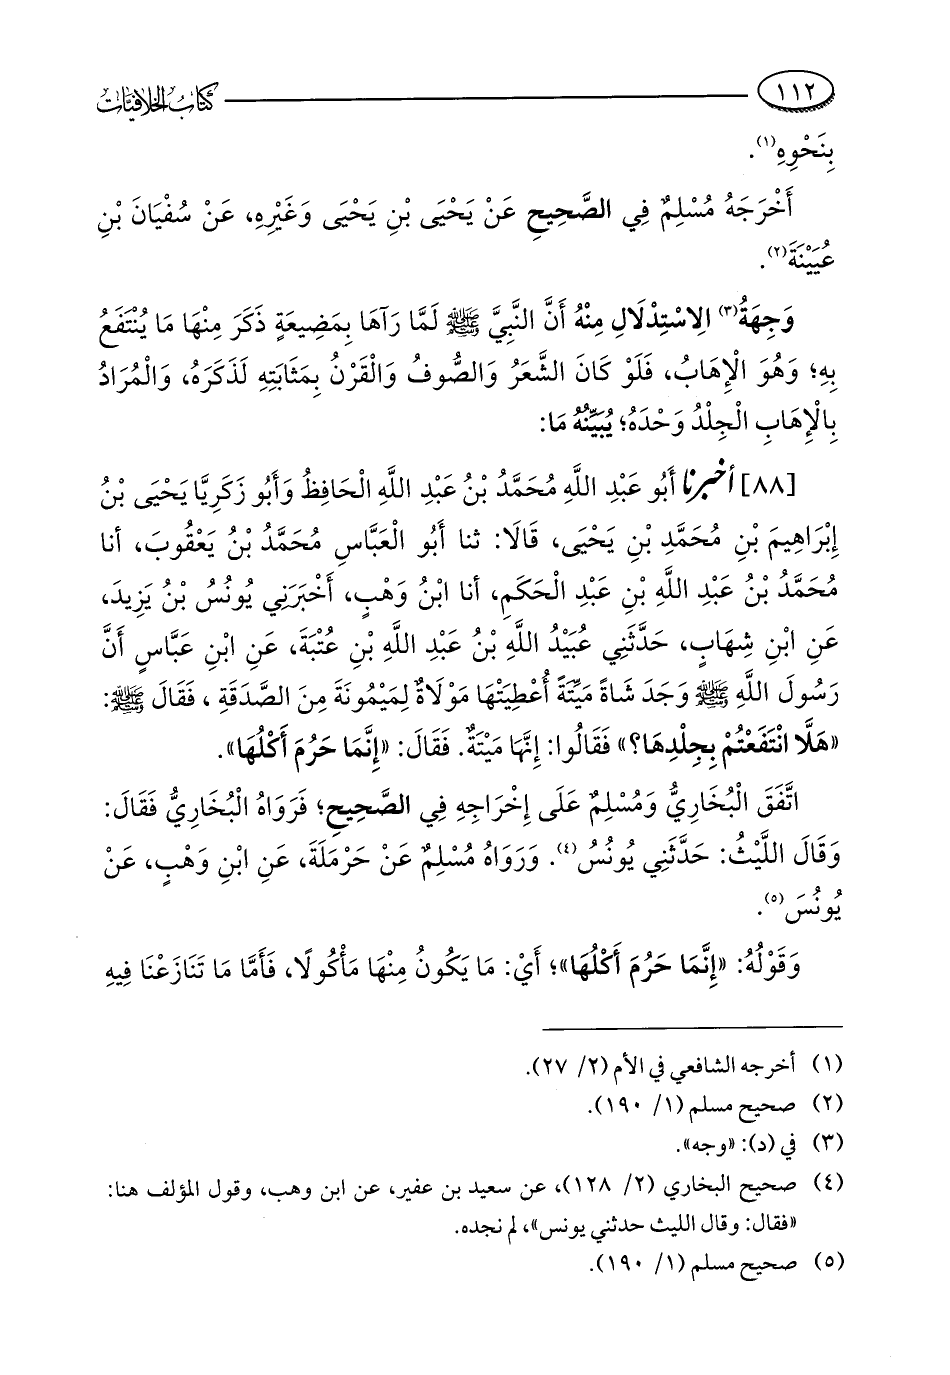 ١١٢ كتاب الخلافيات
بِنَحْوِهِ(١).
أَخْرَجَهُ مُسْلِمٌ فِي الصَّحِيحِ عَنْ يَحْيَى بْنِ يَحْيَى وَغَيْرِهِ، عَنْ سُفْيَانَ بْنِ
عُيَيْنَةَ(٢).
وَجِهَةُ(٣) الِاسْتِدْلَالِ مِنْهُ أَنَّ النَّبِيَّ ﷺ لَمَّا رَآهَا بِمَضِيعَةٍ ذَكَرَ مِنْهَا مَا يُنْتَفَعُ
بِهِ؛ وَهُوَ الْإِهَابُ، فَلَوْ كَانَ الشَّعَرُ وَالصُّوفُ وَالْقَرْنُ بِمَثَابَتِهِ لَذَكَرَهُ، وَالْمُرَادُ
بِالْإِهَابِ الْجِلْدُ وَحْدَهُ؛ يُبَيِّنُهُ مَا:
[٨٨] أخبرنا أَبُو عَبْدِ اللَّهِ مُحَمَّدُ بْنُ عَبْدِ اللَّهِ الْحَافِظُ وَأَبُو زَكَرِيَّا يَحْيَى بْنُ
إِبْرَاهِيمَ بْنِ مُحَمَّدِ بْنِ يَحْيَى، قَالَا: ثنا أَبُو الْعَبَّاسِ مُحَمَّدُ بْنُ يَعْقُوبَ، أنا
مُحَمَّدُ بْنُ عَبْدِ اللَّهِ بْنِ عَبْدِ الْحَكَمِ، أنا ابْنُ وَهْبٍ، أَخْبَرَنِي يُونُسُ بْنُ يَزِيدَ،
عَنِ ابْنِ شِهَابٍ، حَدَّثَنِي عُبَيْدُ اللَّهِ بْنُ عَبْدِ اللَّهِ بْنِ عُتْبَةَ، عَنِ ابْنِ عَبَّاسٍ أَنَّ
رَسُولَ اللَّهِ ﷺ وَجَدَ شَاةً مَيِّتَةً أُعْطِيَتْهَا مَوْلَاةٌ لِمَيْمُونَةَ مِنَ الصَّدَقَةِ، فَقَالَ ﷺ:
«هَلَّا انْتَفَعْتُمْ بِجِلْدِهَا؟» فَقَالُوا: إِنَّهَا مَيْتَةٌ. فَقَالَ: «إِنَّمَا حَرُمَ أَكْلُهَا».
اتَّفَقَ الْبُخَارِيُّ وَمُسْلِمٌ عَلَى إِخْرَاجِهِ فِي الصَّحِيحِ؛ فَرَوَاهُ الْبُخَارِيُّ فَقَالَ:
وَقَالَ اللَّيْثُ: حَدَّثَنِي يُونُسُ(٤). وَرَوَاهُ مُسْلِمٌ عَنْ حَرْمَلَةَ، عَنِ ابْنِ وَهْبٍ، عَنْ
يُونُسَ(٥).
وَقَوْلُهُ: «إِنَّمَا حَرُمَ أَكْلُهَا»؛ أَيْ: مَا يَكُونُ مِنْهَا مَأْكُولًا، فَأَمَّا مَا تَنَازَعْنَا فِيهِ
(١) أخرجه الشافعي في الأم (٢/ ٢٧).
(٢) صحيح مسلم (١/ ١٩٠).
(٣) في (د): «وجه».
(٤) صحيح البخاري (٢/ ١٢٨)، عن سعيد بن عفير، عن ابن وهب، وقول المؤلف هنا:
«فقال: وقال الليث حدثني يونس»، لم نجده.
(٥) صحيح مسلم (١/ ١٩٠).